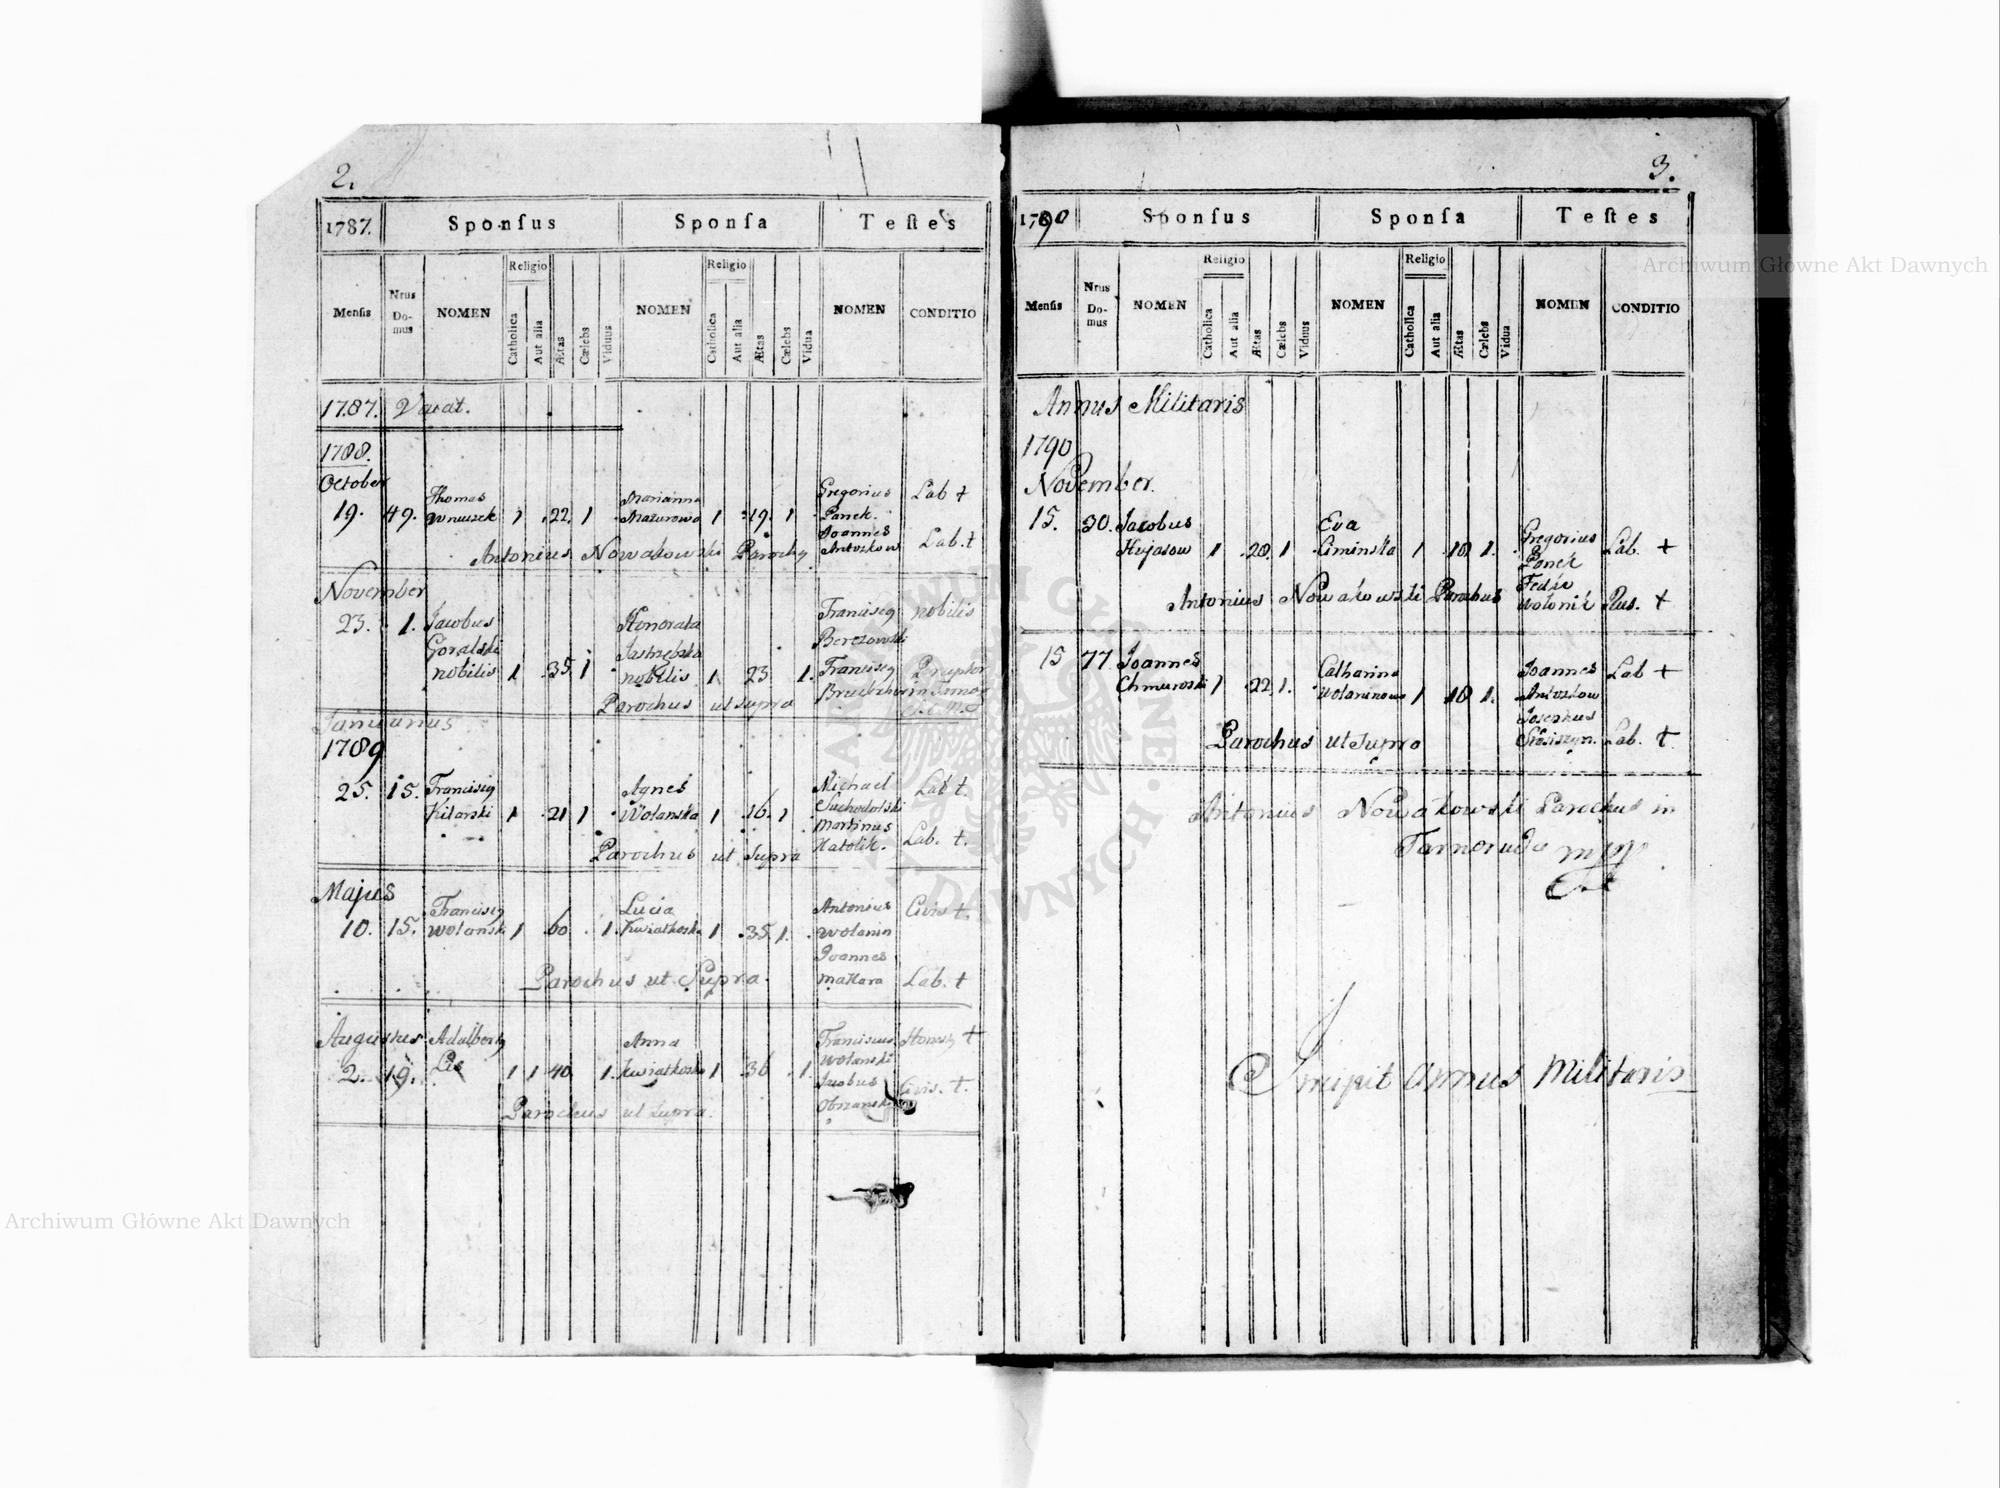 2.
1787. Sponſus Sponſa Teſtes
Menſis Nrus Do-mus NOMEN Religio Catholica Aut alia Ætas Cælebs Viduus NOMEN Religio Catholica Aut alia Ætas Cælebs Vidua NOMEN CONDITIO
1787. Vacat.
1788.
October
Thomas Marianna Gregorius Lab +
19. 49. 1 22. 1 Mazurowa 1 19. 1 Panek.
Joannes
Antonius Nowakowski Antoszkow Lab. +
November
23. 1. Jacobus Honorata Franciscq nobilis
Goralski Jastrzębska Berezowski
nobilis 1 35 1 nobilis 1 23 1. Franciscq
Parochus ut supra
Januarius
1789
25. 15. Franciscq Agnes Michael Lab +
Kilarski 1 21 1 Wolanska 1 16. 1 Suchodolski
Martinus
Parochus ut supra Katolik. Lab. +.
Majus
Franciscq Lucia Antonius Civis +.
10. 15. Wolansk 1 60 1. Kwiatkoska 1 35 1. Wolanin
Joannes
Parochus ut Supra. Makara Lab. +
Augustus Adalbertq Anna Franciscus Honestq +
2. 19. Lis 1 1 40 1. Kwiatkoska 1 36 1. Wolanski
Jacobus Civis. +.
Parochus ut supra.
3.
1790 Sponſus Sponſa Teſtes
Menſis Nrus Do-mus NOMEN Religio Catholica Aut alia Ætas Cælebs Viduus NOMEN Religio Catholica Aut alia Ætas Cælebs Vidua NOMEN CONDITIO
Annus Militaris
1790
November.
15. 30. Jacobus Eva Gregorius Lab. +
Kujasow 1 20 1 Ciminska 1 18 1. Panek
Antonius Nowakowski Parochus Fedko Wolonik Rus. +
15 77 Joannes Catharina Joannes Lab +
Chmuroski 1 22 1. Wolaninowa 1 18 1. Antoszkow
Josephus
Parochus ut supra Lab. +
Antonius Nowakowski Parochus in
Tarnoruda mpp
Incipit Annus Militaris
Archiwum Główne Akt Dawnych
Archiwum Główne Akt Dawnych
ARCHIWUM GŁÓWNE AKT DAWNYCH